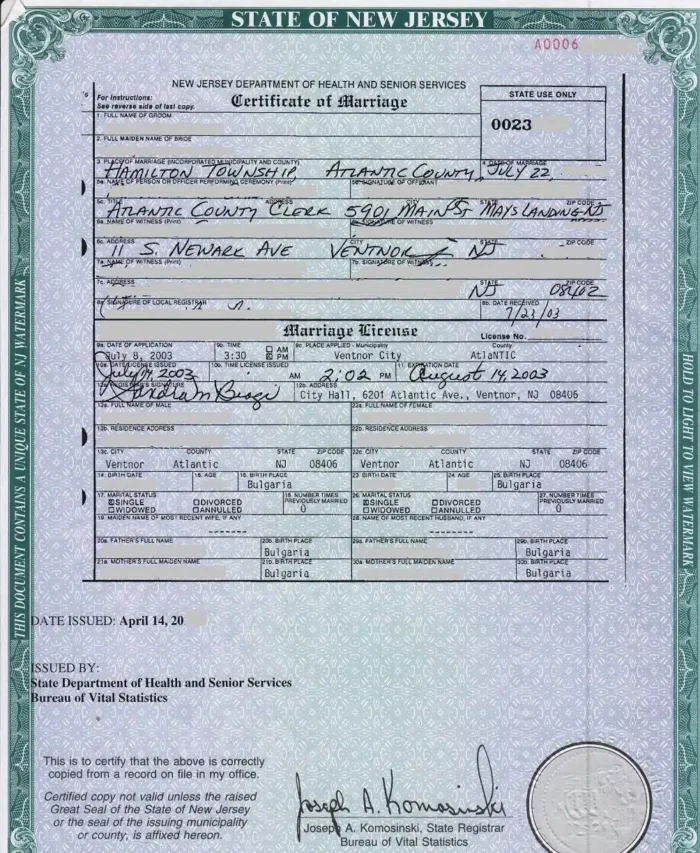 STATE OF NEW JERSEY
A0006
NEW JERSEY DEPARTMENT OF HEALTH AND SENIOR SERVICES
For Instructions:
See reverse side of last copy.
Certificate of Marriage
STATE USE ONLY
0023
1. FULL NAME OF GROOM
2. FULL MAIDEN NAME OF BRIDE
3. PLACE OF MARRIAGE (INCORPORATED MUNICIPALITY AND COUNTY)
4. DATE OF MARRIAGE
HAMILTON TOWNSHIP, ATLANTIC COUNTY, JULY 22,
5a. NAME OF PERSON OR OFFICER PERFORMING CEREMONY (Print)
5b. SIGNATURE OF OFFICIANT
5c. TITLE ADDRESS ZIP CODE
ATLANTIC COUNTY CLERK 5901 MAIN ST MAYS LANDING NJ
6a. NAME OF WITNESS (Print)
6b. SIGNATURE OF WITNESS
6c. ADDRESS CITY STATE ZIP CODE
11 S. NEWARK AVE VENTNOR NJ
7a. NAME OF WITNESS (Print)
7b. SIGNATURE OF WITNESS
7c. ADDRESS STATE ZIP CODE
NJ 08402
8a. SIGNATURE OF LOCAL REGISTRAR
8b. DATE RECEIVED
7/23/03
Marriage License
License No.
9a. DATE OF APPLICATION 9b. TIME AM PM 9c. PLACE APPLIED - Municipality County
July 8, 2003 3:30 Ventnor City AtlaNTIC
10a. DATE LICENSE ISSUED 10b. TIME LICENSE ISSUED 11. EXPIRATION DATE
July 14, 2003 AM 2:02 PM August 14, 2003
12a. REGISTRAR'S SIGNATURE 12b. ADDRESS
City Hall, 6201 Atlantic Ave., Ventnor, NJ 08406
13a. FULL NAME OF MALE 22a. FULL NAME OF FEMALE
13b. RESIDENCE ADDRESS 22b. RESIDENCE ADDRESS
13c. CITY COUNTY STATE ZIP CODE 22c. CITY COUNTY STATE ZIP CODE
Ventnor Atlantic NJ 08406 Ventnor Atlantic NJ 08406
14. BIRTH DATE 15. AGE 16. BIRTH PLACE 23. BIRTH DATE 24. AGE 25. BIRTH PLACE
Bulgaria Bulgaria
17. MARITAL STATUS 18. NUMBER TIMES PREVIOUSLY MARRIED 26. MARITAL STATUS 27. NUMBER TIMES PREVIOUSLY MARRIED
SINGLE DIVORCED SINGLE DIVORCED
WIDOWED ANNULLED 0 WIDOWED ANNULLED 0
19. MAIDEN NAME OF MOST RECENT WIFE, IF ANY 28. NAME OF MOST RECENT HUSBAND, IF ANY
20a. FATHER'S FULL NAME 20b. BIRTH PLACE 29a. FATHER'S FULL NAME 29b. BIRTH PLACE
Bulgaria Bulgaria
21a. MOTHER'S FULL MAIDEN NAME 21b. BIRTH PLACE 30a. MOTHER'S FULL MAIDEN NAME 30b. BIRTH PLACE
Bulgaria Bulgaria
THIS DOCUMENT CONTAINS A UNIQUE STATE OF NJ WATERMARK
HOLD TO LIGHT TO VIEW WATERMARK
DATE ISSUED: April 14, 20
ISSUED BY:
State Department of Health and Senior Services
Bureau of Vital Statistics
This is to certify that the above is correctly
copied from a record on file in my office.
Certified copy not valid unless the raised
Great Seal of the State of New Jersey
or the seal of the issuing municipality
or county, is affixed hereon.
Joseph A. Komosinski
Joseph A. Komosinski, State Registrar
Bureau of Vital Statistics